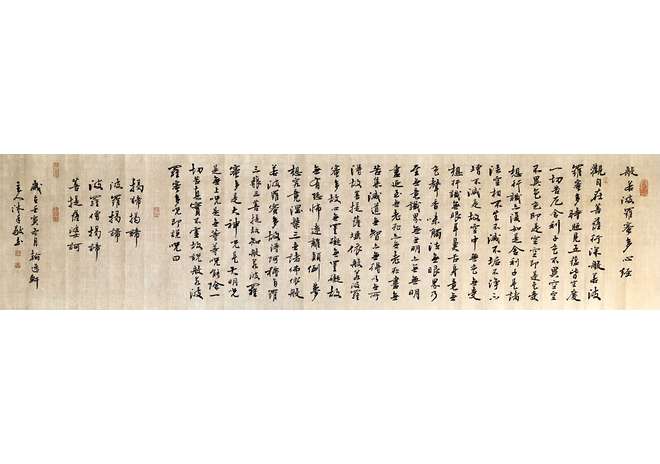 般若波羅蜜多心經
觀自在菩薩行深般若波
羅蜜多時照見五蘊皆空度
一切苦厄舍利子色不異空空
不異色色即是空空即是色受
想行識亦復如是舍利子是諸
法空相不生不滅不垢不淨不
增不減是故空中無色無受
想行識無眼耳鼻舌身意無
色聲香味觸法無眼界乃
至無意識界無無明亦無無明
盡乃至無老死亦無老死盡無
苦集滅道無智亦無得以無所
得故菩提薩埵依般若波羅
蜜多故心無罣礙無罣礙故
無有恐怖遠離顛倒夢
想究竟涅槃三世諸佛依般
若波羅蜜多故得阿耨多羅
三藐三菩提故知般若波羅
蜜多是大神咒是大明咒
是無上咒是無等等咒能除一
切苦真實不虛故說般若波
羅蜜多咒即說咒曰
揭諦揭諦
波羅揭諦
波羅僧揭諦
菩提薩婆訶
歲在壬寅月軒
主人沐手敬書